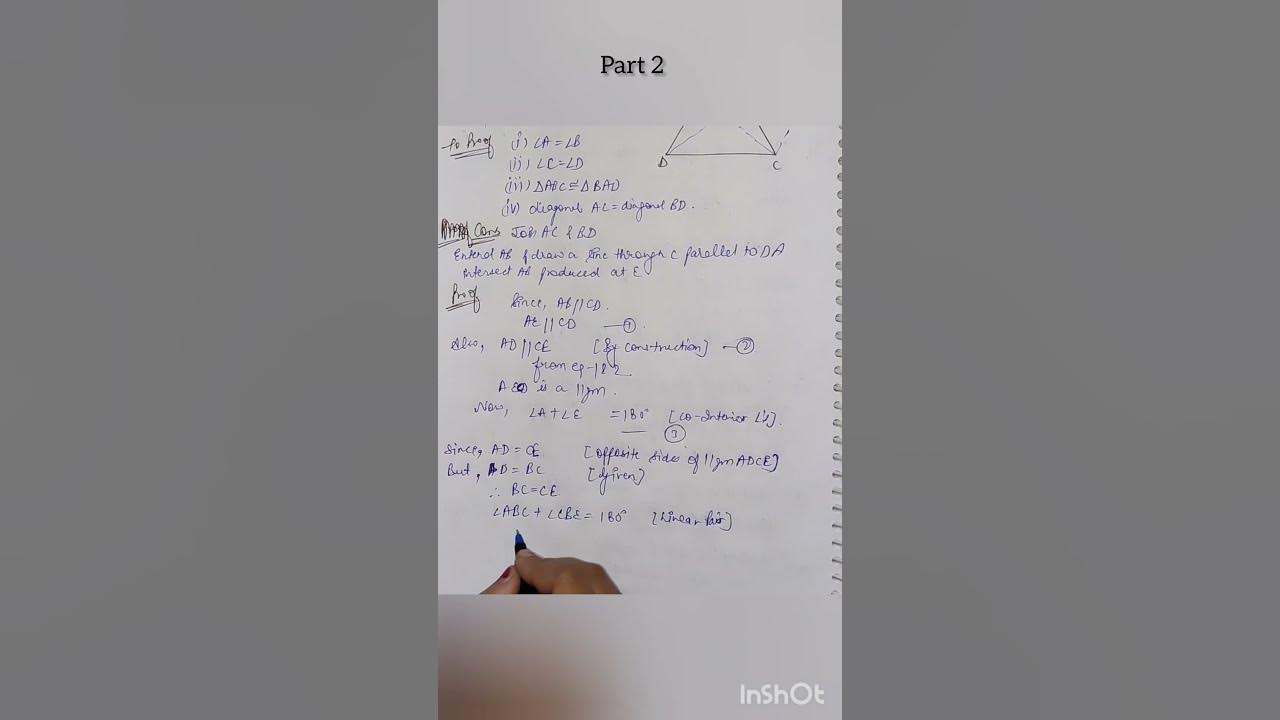 Part 2
To Proof (i) ∠A = ∠B
(ii) ∠C = ∠D
(iii) △ABC ≅ △BAD
(iv) diagonal AC = diagonal BD.
D C
Cons Join AC & BD
Extend AB & draw a line through C parallel to DA
intersect AB produced at E
Proof Since, AB//CD.
AE//CD —①.
Also, AD//CE [By construction] —②
from eq-1&2
is a //gm.
Now, ∠A + ∠E = 180° [co-interior ∠'s].
— ③
Since, AD = CE [opposite sides of //gm ADCE]
But, AD = BC [given]
∴ BC = CE
∠ABC + ∠CBE = 180° [Linear Pair]
InShOt